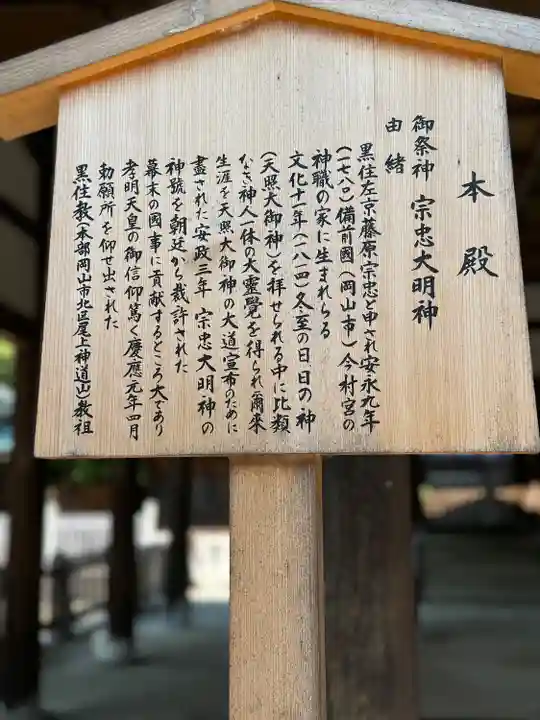 本殿
御祭神 宗忠大明神
由緒
黒住左京藤原宗忠と申され安永九年
(一七八〇)備前國(岡山市)今村宮の
神職の家に生まれらる
文化十一年(一八一四)冬至の日日の神
(天照大御神)を拝せられる中に比類
なき神人一体の大靈覺を得られ爾来
生涯を天照大御神の大道宣布のために
盡された安政三年 宗忠大明神の
神號を朝廷から裁許された
幕末の國事に貢献するところ大であり
孝明天皇の御信仰篤く慶應元年四月
勅願所を仰せ出された
黒住教(本部岡山市北区尾上神道山)教祖